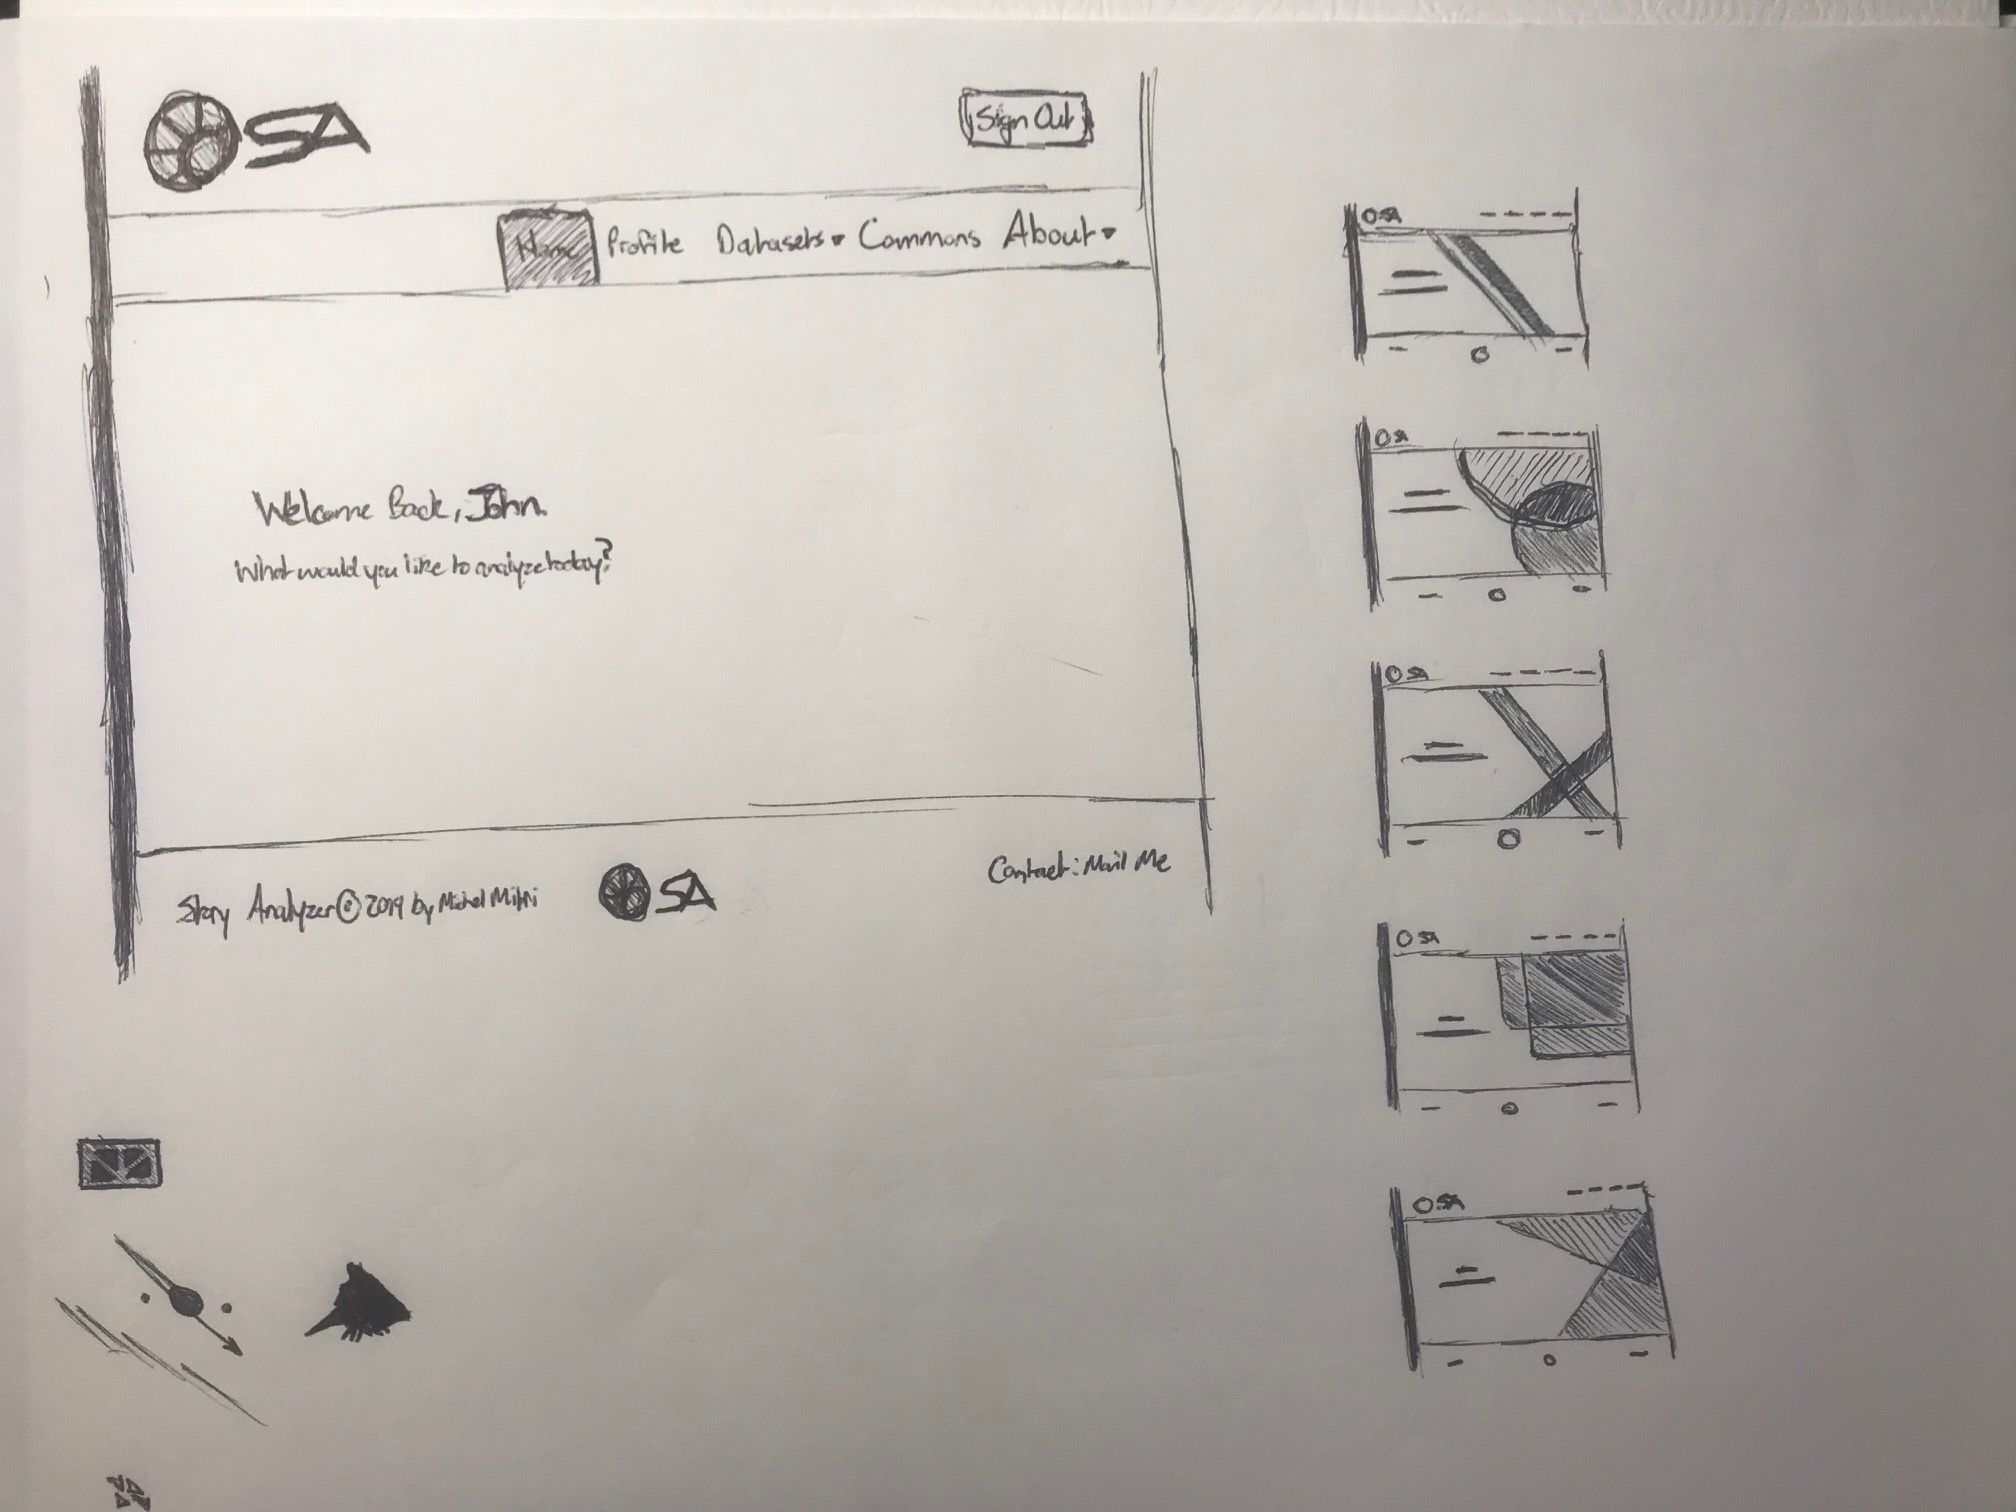 SA
Sign Out
Home Profile Datasets Commons About
Welcome Back, John.
What would you like to analyze today?
Story Analyzer © 2019 by Michel Mitri
SA
Contact: Mail Me
SA
SA
SA
SA
SA